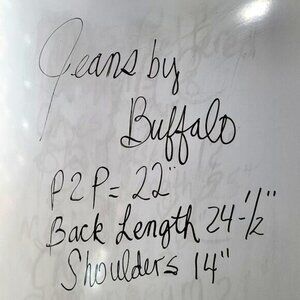 Jeans by
Buffalo
P2P = 22"
Back Length 24-1/2"
Shoulders 14"